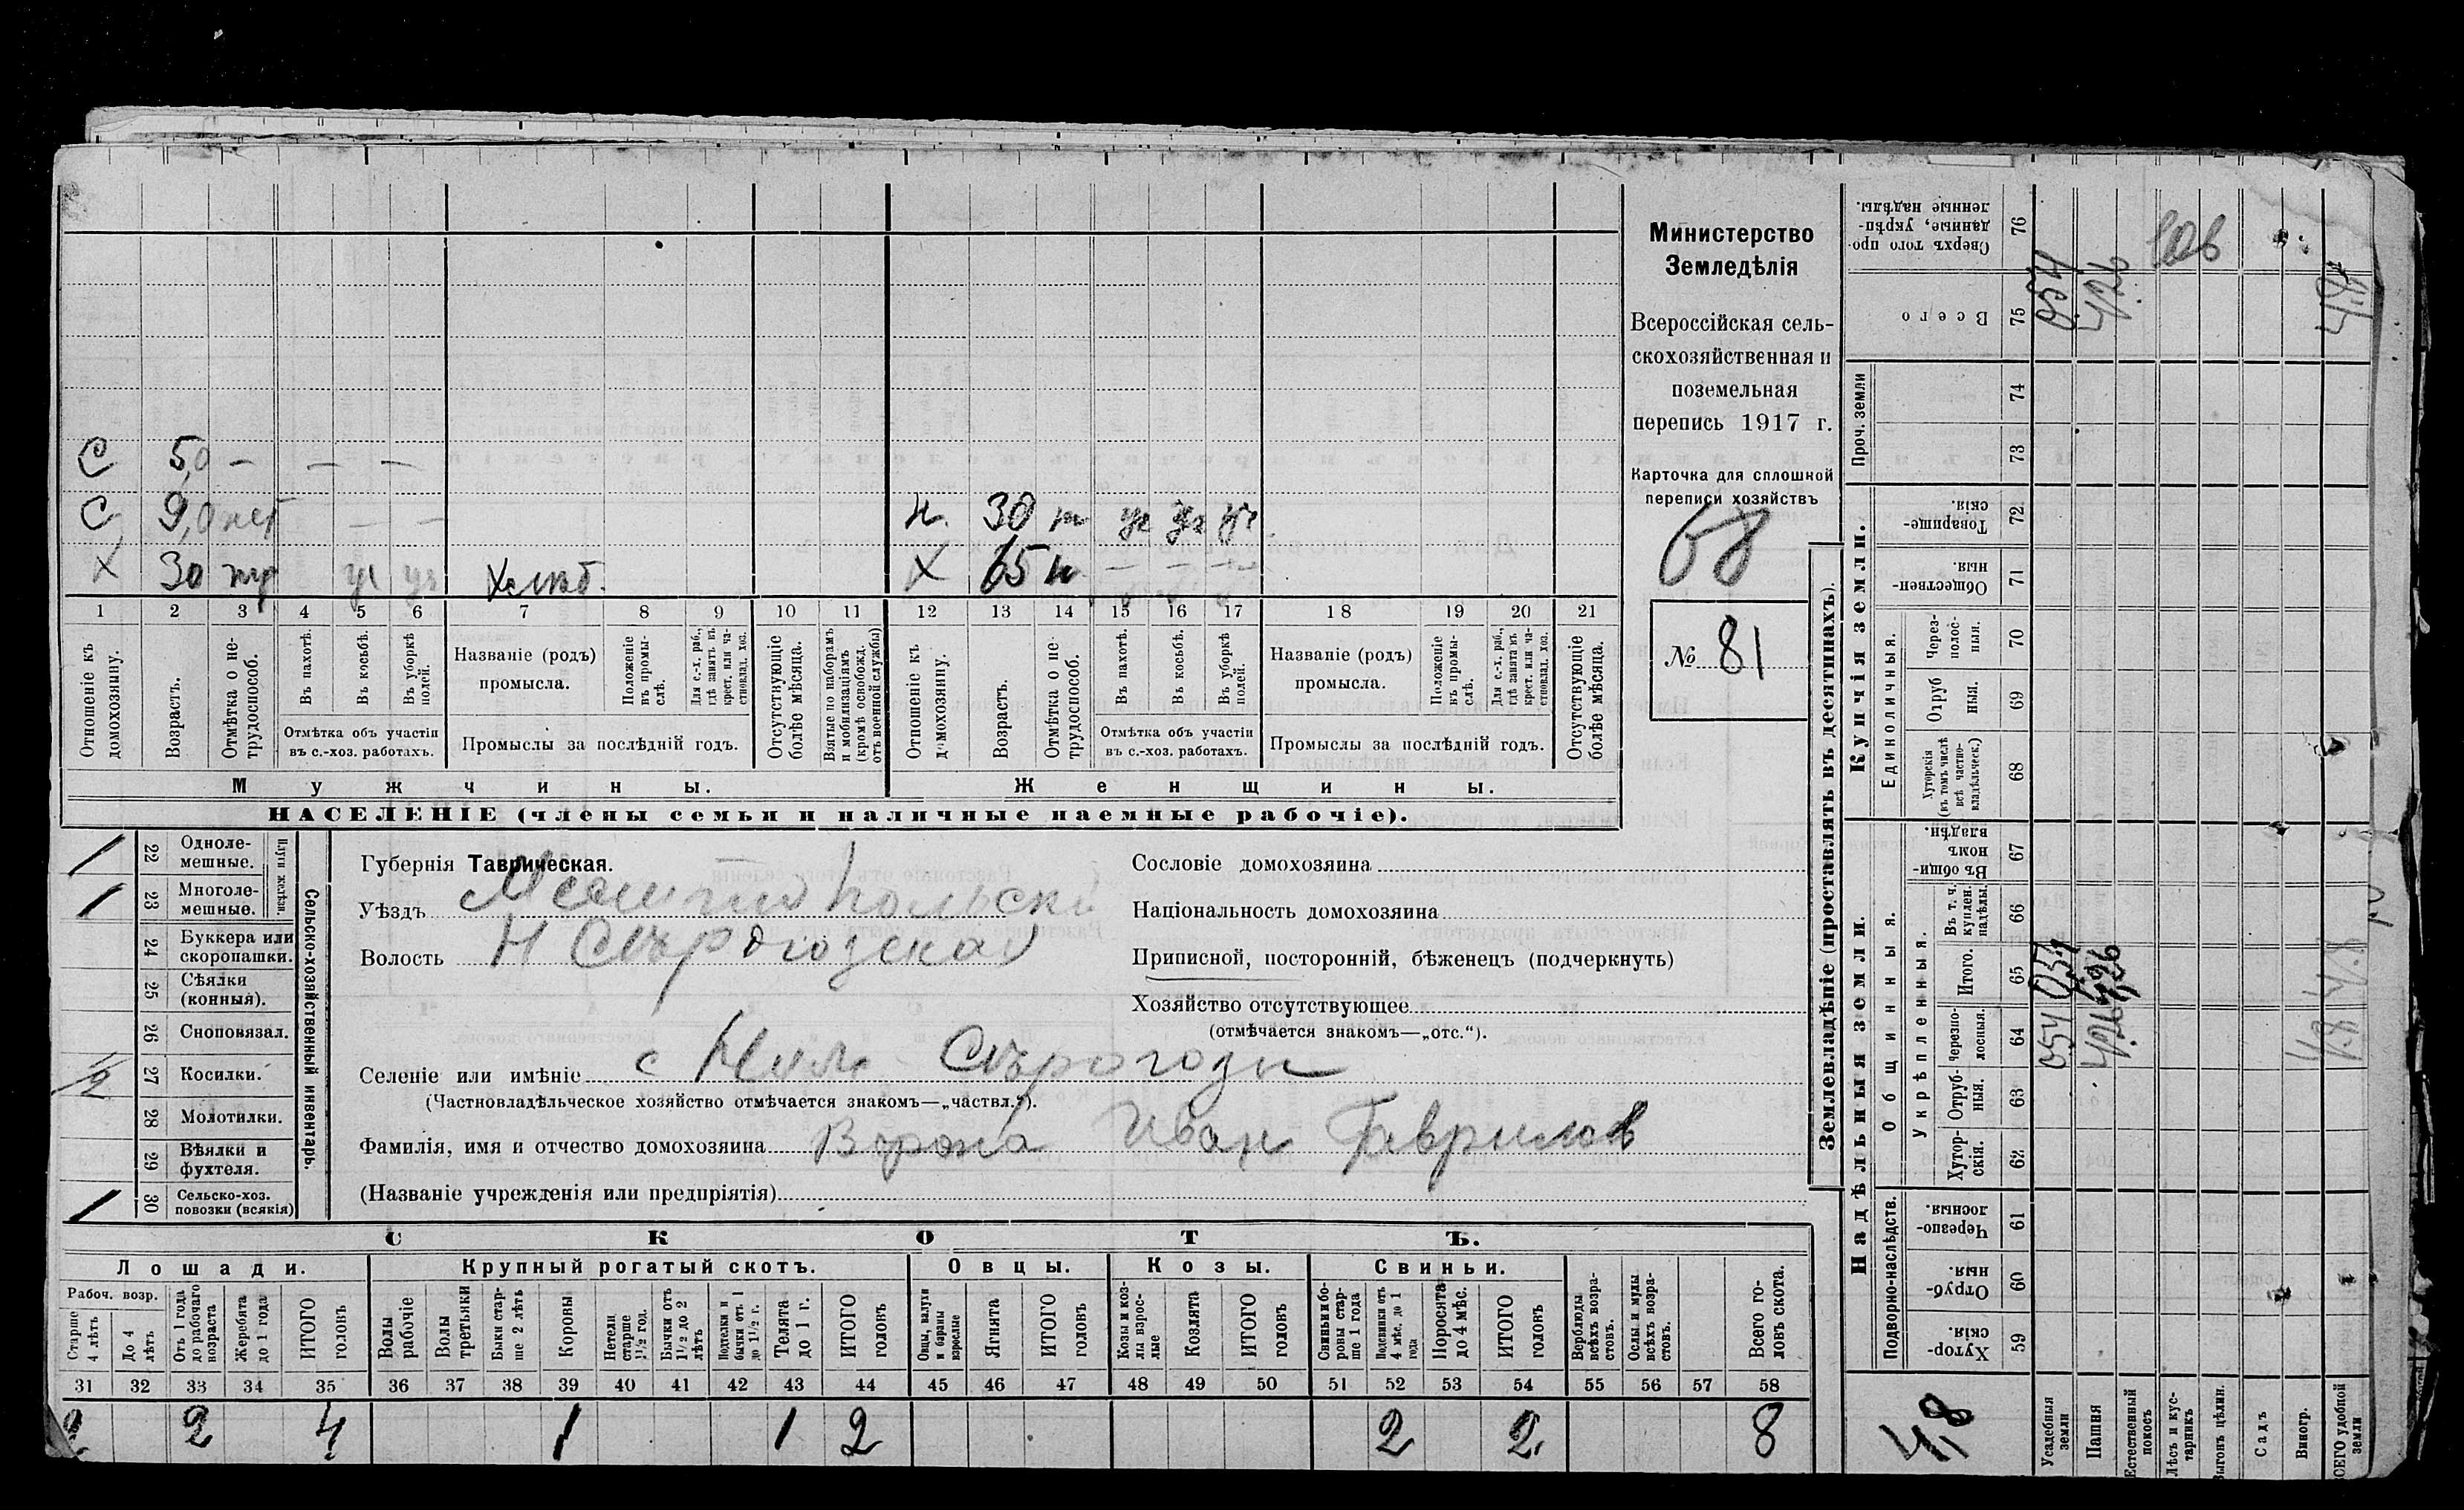 Министерство
Земледѣлія
Всероссійская сель-
скохозяйственная и
поземельная
перепись 1917 г.
Карточка для сплошной
переписи хозяйствъ
68
№ 81
С 5,0 — — —
С 9,0 нет — —
Х 30 ур уч
Н. 30 н
Х 65 н — — —
1 2 3 4 5 6 7 8 9 10 11 12 13 14 15 16 17 18 19 20 21
Отношеніе къ домохозяину.
Возрастъ.
Отмѣтка о не-трудоспособ.
Въ пахотѣ.
Въ косьбѣ.
Въ уборкѣ полей.
Отмѣтка объ участіи въ с.-хоз. работахъ.
Названіе (родъ) промысла.
Положеніе въ промы-слѣ.
Для с.-х. раб., гдѣ занятъ въ крест. или ча-стновлад. хоз.
Промыслы за послѣдній годъ.
Отсутствующіе болѣе мѣсяца.
Взятые по наборамъ и мобилизаціямъ (кромѣ освобожд. отъ военной службы)
Отношеніе къ домохозяину.
Возрастъ.
Отмѣтка о не-трудоспособ.
Въ пахотѣ.
Въ косьбѣ.
Въ уборкѣ полей.
Отмѣтка объ участіи въ с.-хоз. работахъ.
Названіе (родъ) промысла.
Положеніе въ промы-слѣ.
Для с.-х. раб., гдѣ занята въ крест. или ча-стновлад. хоз.
Промыслы за послѣдній годъ.
Отсутствующіе болѣе мѣсяца.
Мужчины.
Женщины.
НАСЕЛЕНІЕ (члены семьи и наличные наемные рабочіе).
Сельско-хозяйственный инвентарь.
Плуги желѣзн.
1 22 Одноле-мешные.
1 23 Многоле-мешные.
24 Буккера или скоропашки.
25 Сѣялки (конныя).
26 Сноповязал.
1/2 27 Косилки.
28 Молотилки.
29 Вѣялки и фухтеля.
1 30 Сельско-хоз. повозки (всякія)
Губернія Таврическая.
Уѣздъ Мелитопольски
Волость Н Сѣрогозская
Селеніе или имѣніе с Нижн Сѣрогозы
(Частновладѣльческое хозяйство отмѣчается знакомъ—„частвл.“).
Фамилія, имя и отчество домохозяина Ворона Иван Гаврилов
(Названіе учрежденія или предпріятія)
Сословіе домохозяина
Національность домохозяина
Приписной, посторонній, бѣженецъ (подчеркнуть)
Хозяйство отсутствующее
(отмѣчается знакомъ—„отс.“).
СКОТЪ.
Лошади.
Крупный рогатый скотъ.
Овцы.
Козы.
Свиньи.
Рабоч. возр.
Старше 4 лѣтъ
До 4 лѣтъ
Отъ 1 года до рабочаго возраста
Жеребята до 1 года
ИТОГО головъ
Волы рабочіе
Волы третьяки
Быки стар-ше 2 лѣтъ
Коровы
Нетели старше 1½ год.
Бычки отъ 1½ до 2 лѣтъ
Подтелки и бычки отъ 1 до 1½ г.
Телята до 1 г.
ИТОГО головъ
Овцы, валухи и бараны взрослые
Ягнята
ИТОГО головъ
Козы и коз-лы взрос-лые
Козлята
ИТОГО головъ
Свиньи и бо-ровы стар-ше 1 года
Подсвинки отъ 4 мѣс. до 1 года
Поросята до 4 мѣс.
ИТОГО головъ
Верблюды всѣхъ возра-стовъ.
Ослы и мулы всѣхъ возра-стовъ.
Всего го-ловъ скота.
31 32 33 34 35 36 37 38 39 40 41 42 43 44 45 46 47 48 49 50 51 52 53 54 55 56 57 58
2 2 4 1 1 2 2 2 8
Землевладѣніе (проставлять въ десятинахъ).
Купчія земли.
Надѣльныя земли.
Сверхъ того про-данные, укрѣп-ленные надѣлы. 76
Всего 75 0,54 4,26
Проч. земли 74 73
Товарище-скія. 72
Обществен-ныя. 71
Единоличныя.
Через-полос-ныя. 70
Отруб-ныя. 69
Хуторскія (въ томъ числѣ всѣ частно-владѣльческ.) 68
Общинныя.
Въ общи-номъ владѣн. 67
Укрѣпленныя.
Въ т. ч. куплен. надѣлы. 66
Итого. 65 0,54 4,26
Черезпо-лосныя. 64 054 4,26 4,8
Отруб-ныя. 63
Хутор-скія. 62
Подворно-наслѣдств.
Черезпо-лосныя. 61
Отруб-ныя. 60
Хутор-скія. 59
4,8
Усадебныя земли
Пашня
Естественный покосъ
Лѣсъ и кус-тарникъ
Выгонъ цѣлин.
Садъ
Виногр.
ВСЕГО удобной земли